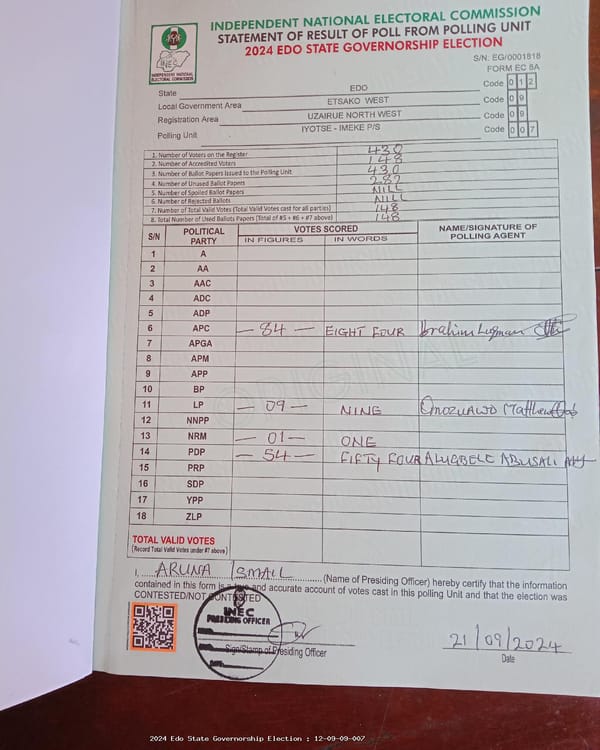 INDEPENDENT NATIONAL ELECTORAL COMMISSION
STATEMENT OF RESULT OF POLL FROM POLLING UNIT
2024 EDO STATE GOVERNORSHIP ELECTION
INEC
INDEPENDENT NATIONAL ELECTORAL COMMISSION
S/N: EG/0001818
FORM EC 8A
State EDO Code 012
Local Government Area ETSAKO WEST Code 09
Registration Area UZAIRUE NORTH WEST Code 09
Polling Unit IYOTSE - IMEKE P/S Code 007
1. Number of Voters on the Register 430
2. Number of Accredited Voters 148
3. Number of Ballot Papers Issued to the Polling Unit 430
4. Number of Unused Ballot Papers 282
5. Number of Spoiled Ballot Papers NILL
6. Number of Rejected Ballots NILL
7. Number of Total Valid Votes (Total Valid Votes cast for all parties) 148
8. Total Number of Used Ballots Papers (Total of #5 + #6 + #7 above) 148
S/N POLITICAL PARTY VOTES SCORED NAME/SIGNATURE OF POLLING AGENT
IN FIGURES IN WORDS
1 A
2 AA
3 AAC
4 ADC
5 ADP
6 APC - 84 - EIGHT FOUR Ibrahim Luqman
7 APGA
8 APM
9 APP
10 BP
11 LP - 09 - NINE Onozuawo Matthew
12 NNPP
13 NRM - 01 - ONE
14 PDP - 54 - FIFTY FOUR ALUGBELE ABUSALI
15 PRP
16 SDP
17 YPP
18 ZLP
ORIGINAL
TOTAL VALID VOTES
(Record Total Valid Votes under #7 above)
I, ARUNA ISMAIL (Name of Presiding Officer) hereby certify that the information
contained in this form is a true and accurate account of votes cast in this polling Unit and that the election was
CONTESTED/NOT CONTESTED
INEC
PRESIDING OFFICER
Sign/Stamp of Presiding Officer
DATE:
21/09/2024
Date
2024 Edo State Governorship Election : 12-09-09-007